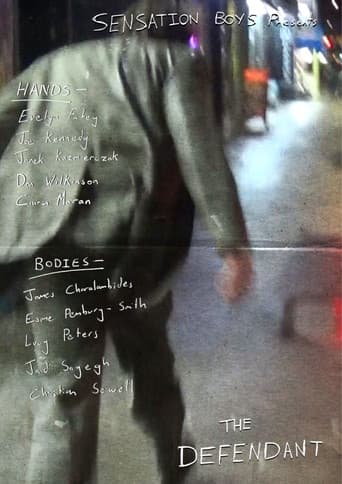 SENSATION BOYS Presents
HANDS -
Evelyn
Joe Kennedy
Janek Kazmierczak
Dan Wilkinson
Ciara Moran
BODIES -
James Charalambides
Esme Pemburg-Smith
Lucy Peters
Sayegh
Christian Sewell
THE
DEFENDANT